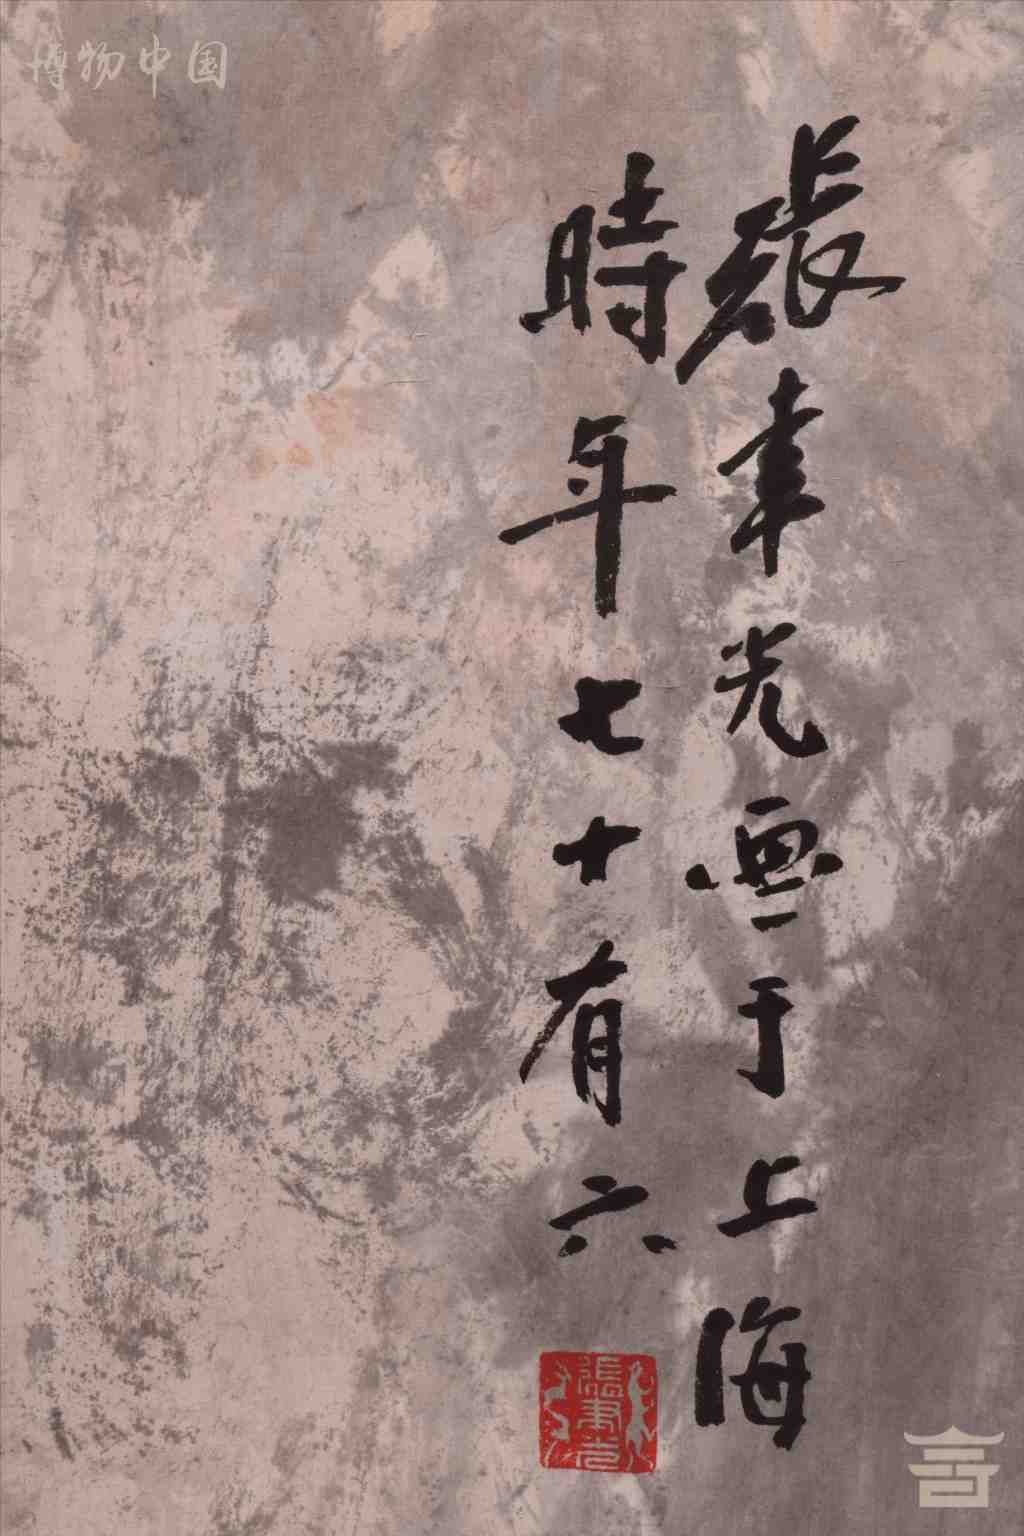 博物中国
張聿光画于上海
時年七十有六
張聿光